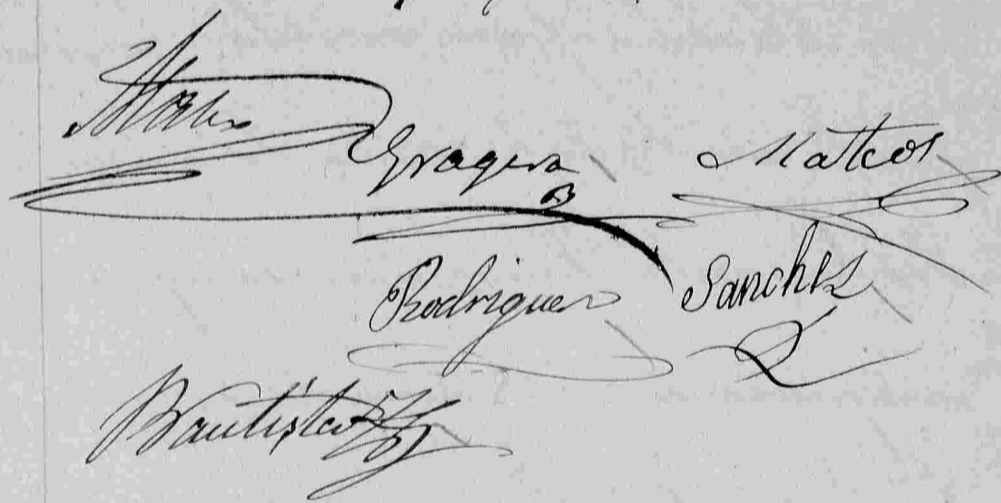 Gragera Mateos
Rodriguez Sanchez
Bautista